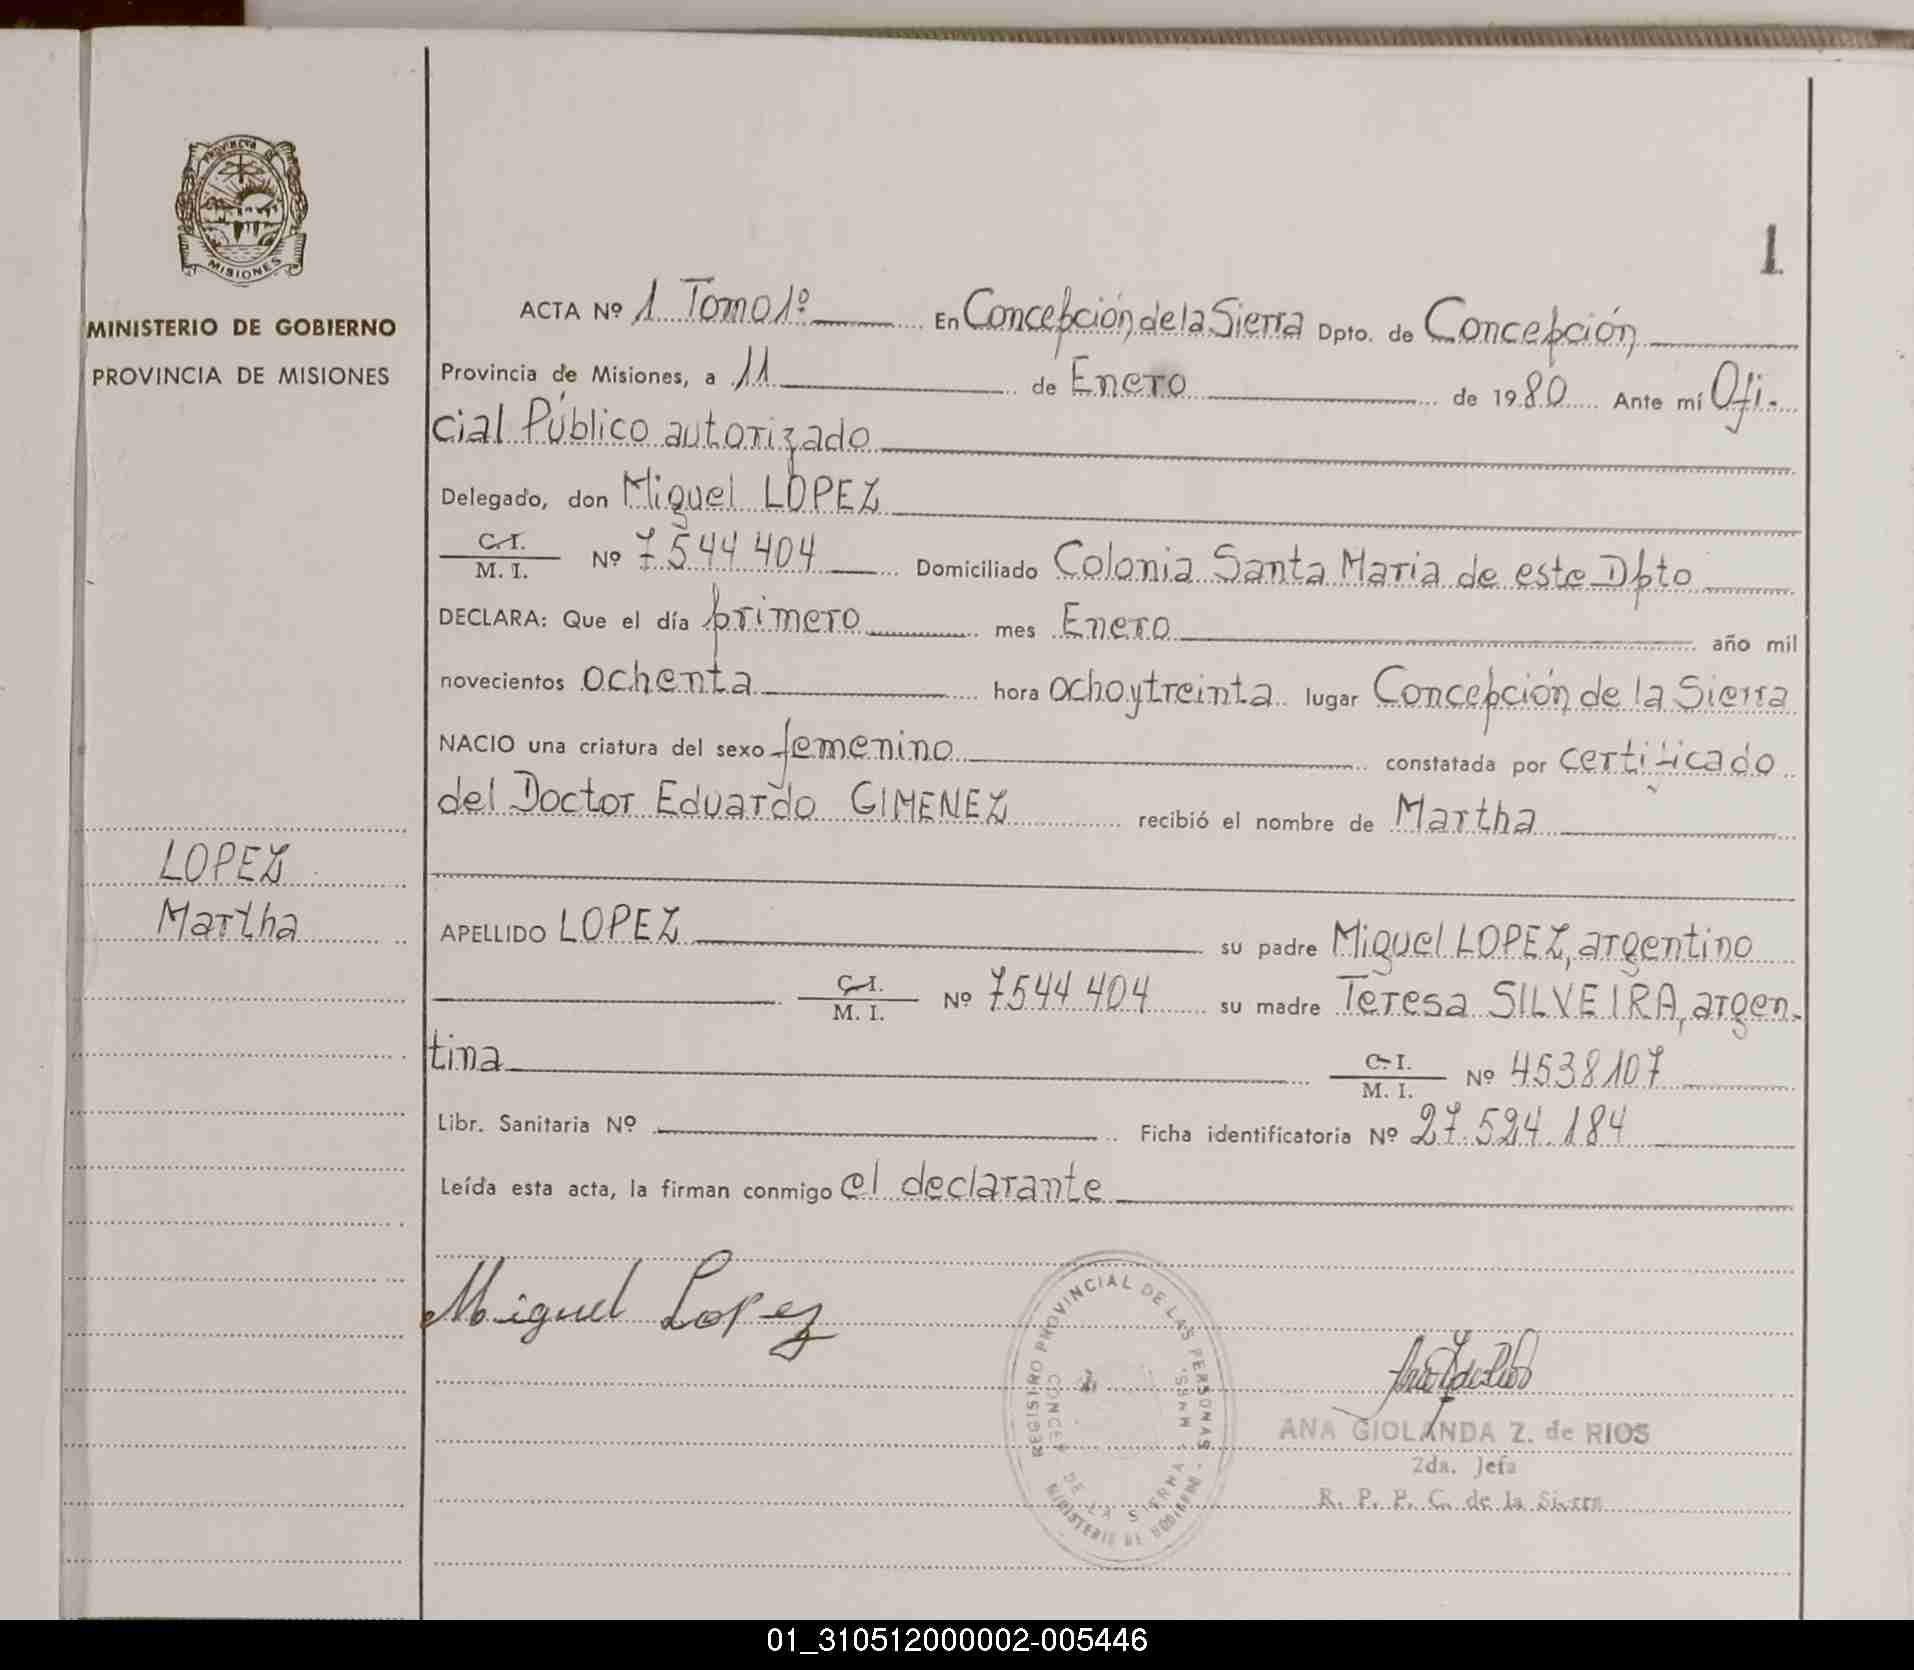 PROVINCIA DE
MISIONES
MINISTERIO DE GOBIERNO
PROVINCIA DE MISIONES
LOPEZ
Martha
1
ACTA Nº 1 Tomo 1º En Concepción de la Sierra Dpto. de Concepción
Provincia de Misiones, a 11 de Enero de 1980 Ante mí Ofi-
cial Público autorizado
Delegado, don Miguel LOPEZ
C. I.
M. I. Nº 7544404 Domiciliado Colonia Santa Maria de este Dpto
DECLARA: Que el día primero mes Enero año mil
novecientos ochenta hora ocho y treinta lugar Concepción de la Sierra
NACIO una criatura del sexo femenino constatada por certificado
del Doctor Eduardo GIMENEZ recibió el nombre de Martha
APELLIDO LOPEZ su padre Miguel LOPEZ, argentino
C. I.
M. I. Nº 7544.404 su madre Teresa SILVEIRA, argen-
tina C. I.
M. I. Nº 4538107
Libr. Sanitaria Nº Ficha identificatoria Nº 27.524.184
Leída esta acta, la firman conmigo el declarante
Miguel Lopez
REGISTRO PROVINCIAL DE LAS PERSONAS
CONCEP. DE LA SIERRA - MNES.
MINISTERIO DE GOBIERNO
ANA GIOLANDA Z. de RIOS
2da. Jefa
R. P. P. C. de la Sierra
01_310512000002-005446